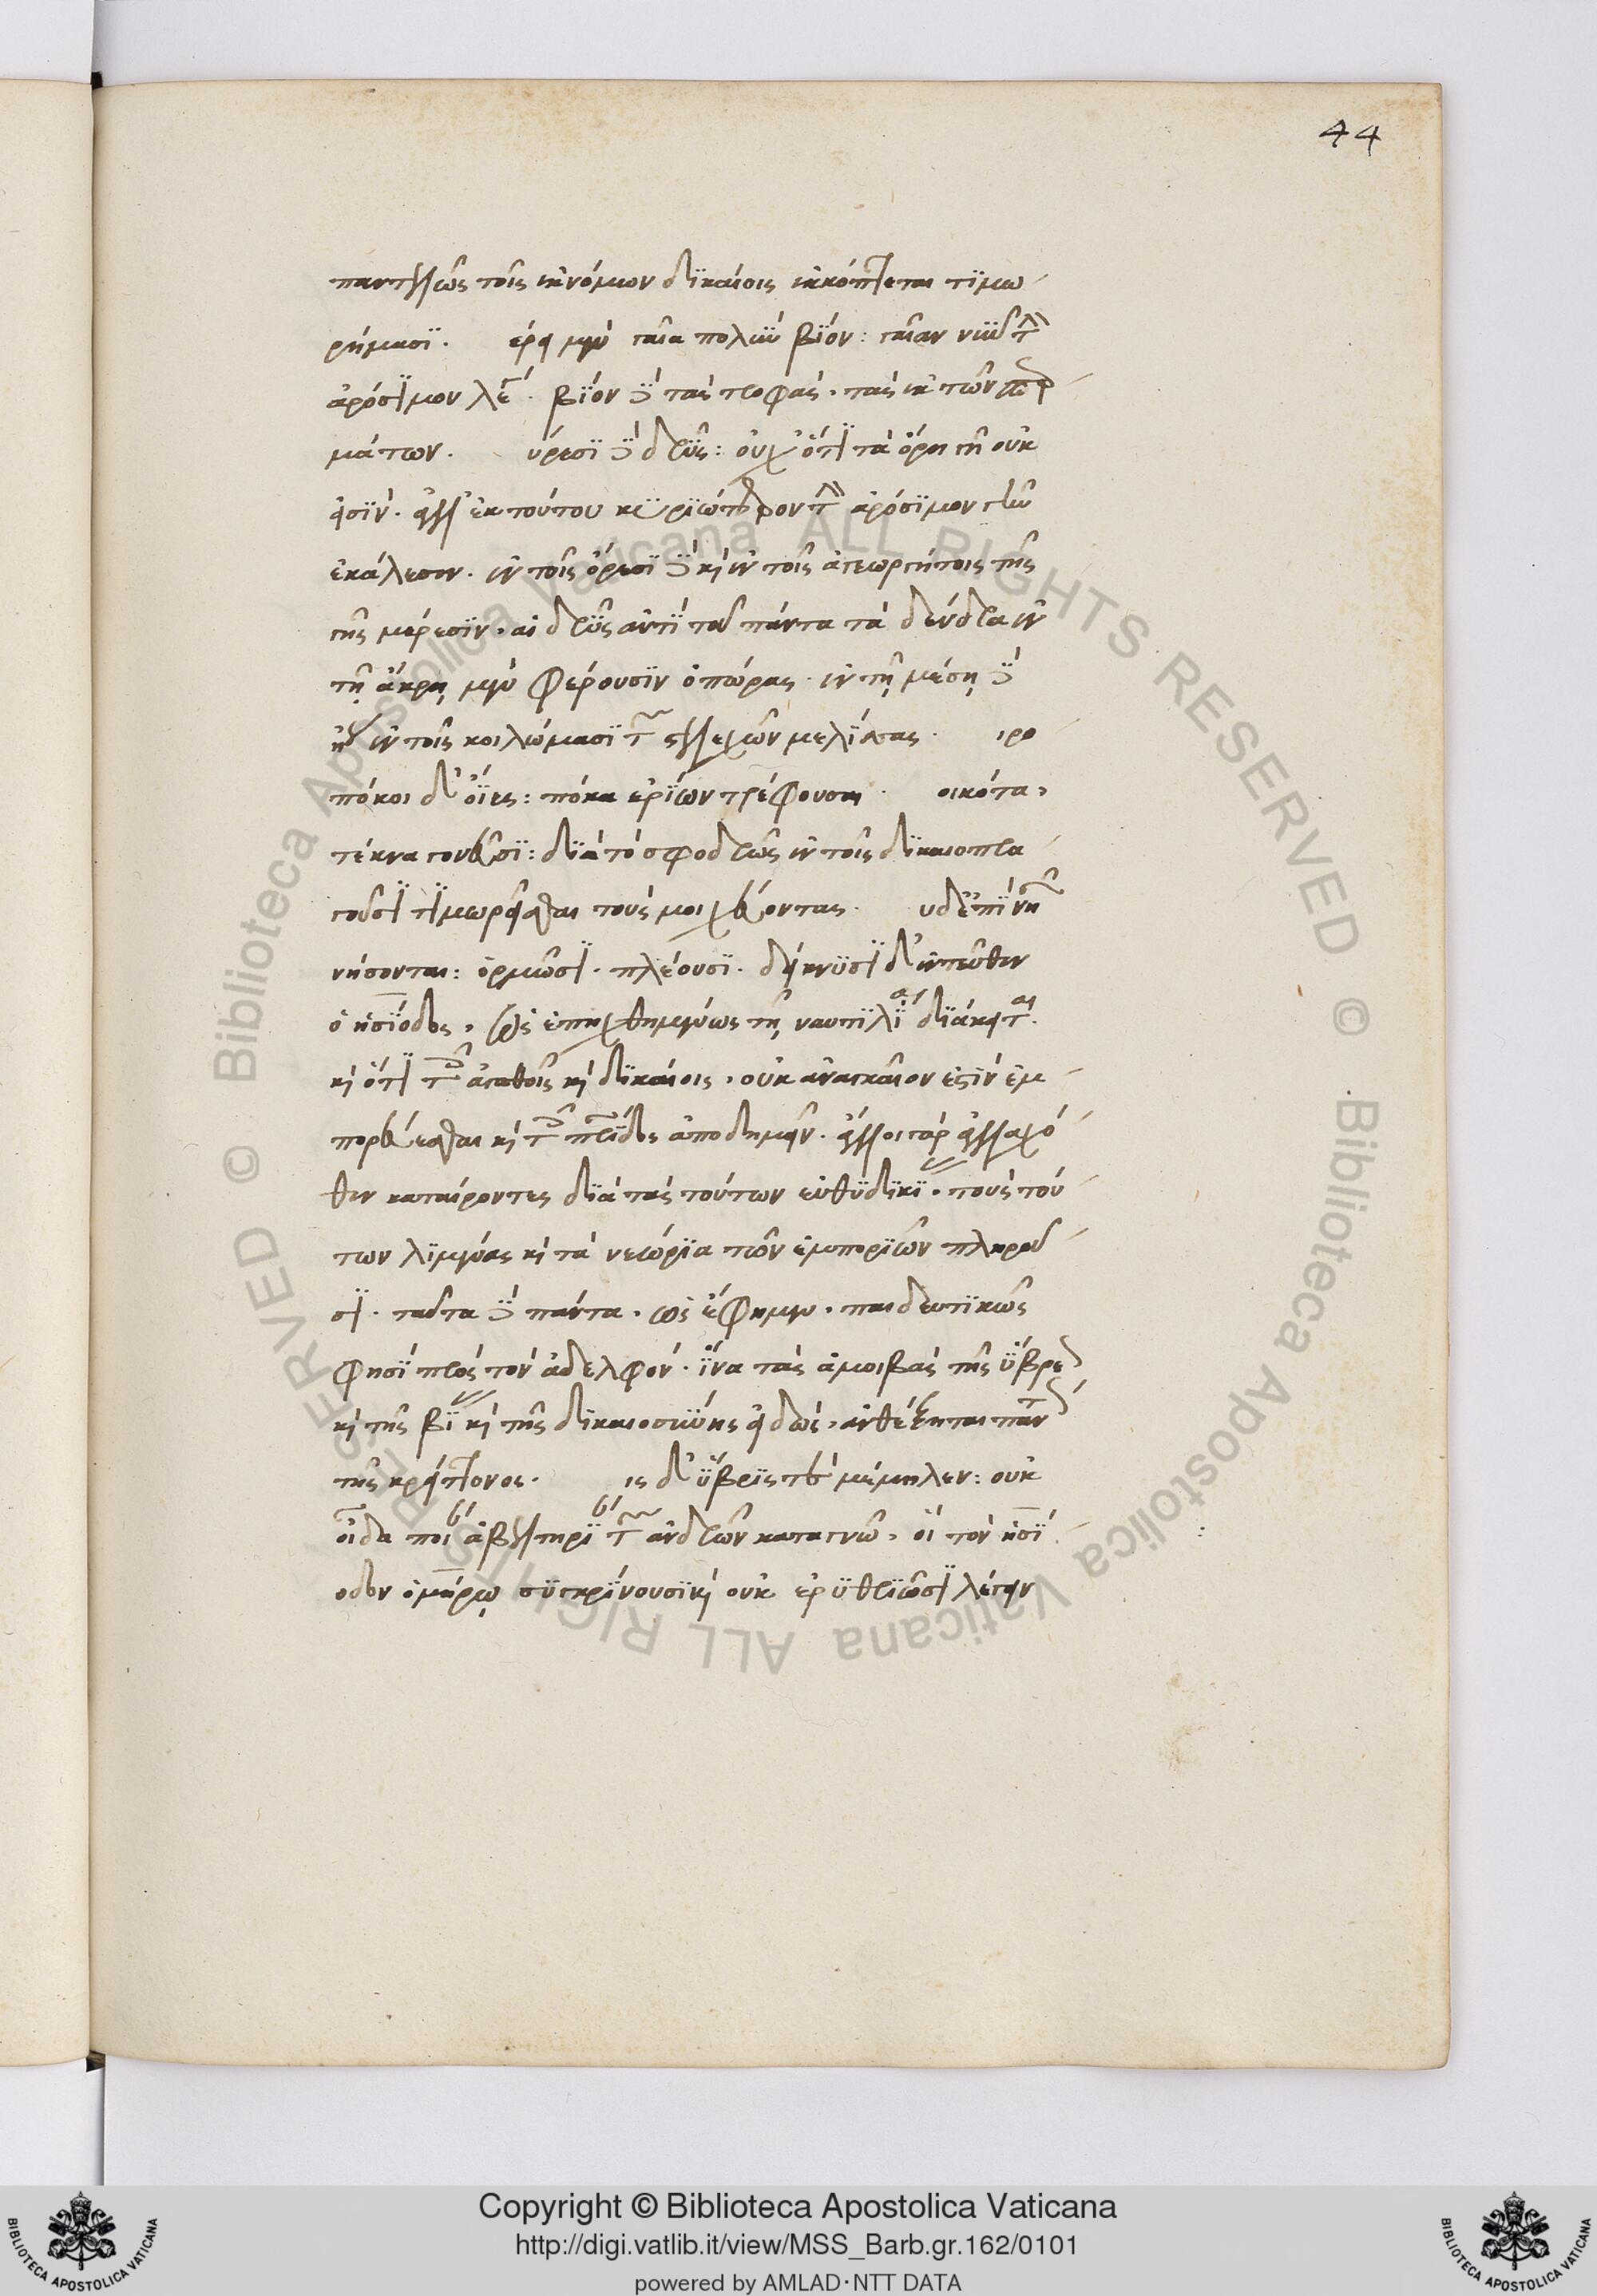 44
παντελῶς τοῖς ἐκ νόμων δϊκαίοις ἐκκόπτεται τϊμω
ρήμασϊ. έρει μὲν γαῖα πολὺν βϊόν: γαῖαν νῦν τὴν
ἀρόσϊμον λέγει. βϊόν δὲ τὰς τροφάς, τὰς ἐκ τῶν σπερ
μάτων. ύρεσϊ δὲ δρῦς: οὐχ ὅτϊ τὰ ὄρη γῆ οὐκ
εἰσὶν. ἀλλ' ἐκ τούτου κϋρϊώτερον τὴν ἀρόσϊμον γῆν
ἐκάλεσεν. ἐν τοῖς ὄρεσϊ δὲ καὶ ἐν τοῖς ἀγεωργήτοις τῆς
γῆς μέρεσϊν, αἱ δρῦς ἀντὶ τοῦ πάντα τὰ δένδρα ἐν
τῇ ἄκρῃ μὲν φέρουσϊν ὀπώρας. ἐν τῇ μέσῃ δὲ
ἤγουν ἐν τοῖς κοιλώμασϊ τῶν στελεχῶν μελίσσας. ιρο
πόκοι δ' ὄϊες: πόκα ἐρΐων τρέφουσαι. οικότα,
τέκνα γονεῦσϊ: δϊὰ τὸ σφοδρῶς ἐν τοῖς δϊκαιοπρα
γοῦσϊ τϊμωρεῖσθαι τοὺς μοιχεύοντας. υδ' ἐπὶ νηῶν
νήσονται: ὁρμῶσϊ. πλέουσϊ. δείκνϋσϊ δ' ἐντεῦθεν
ὁ ἡσίοδος, ὡς ἐπηχθημένως τῇ ναυτϊλίᾳ δϊάκειται.
καὶ ὅτϊ τοῖς ἀγαθοῖς καὶ δϊκαίοις, οὐκ ἀναγκαῖον ἐστὶν ἐμ
πορεύεσθαι καὶ τῆς πατρίδος ἀποδημεῖν. ἄλλοι γὰρ ἀλλαχό
θεν καταίροντες δϊὰ τὰς τούτων εὐθϋδϊκίας, τοὺς τού
των λϊμένας καὶ τὰ νεώρϊα τῶν ἐμπορϊῶν πληροῦ
σϊ. ταῦτα δὲ πάντα, ὡς ἔφημεν, παιδευτϊκῶς
φησὶ πρὸς τὸν ἀδελφόν. ἵνα τὰς ἀμοιβὰς τῆς ὕβρεως
καὶ τῆς βίας καὶ τῆς δϊκαιοσύνης εἰδώς, ἀνθέξηται πάντως
τῆς κρείττονος. ις δ' ὕβρϊς τε μέμηλεν: οὐκ
οἶδα ποίας ἀβελτηρίας τῶν ἀνδρῶν καταγνῶ, οἱ τὸν ἡσί
οδον ὁμήρῳ συγκρίνουσϊ καὶ οὐκ ἐρϋθρϊῶσϊ λέγειν
Copyright © Biblioteca Apostolica Vaticana
http://digi.vatlib.it/view/MSS_Barb.gr.162/0101
powered by AMLAD·NTT DATA